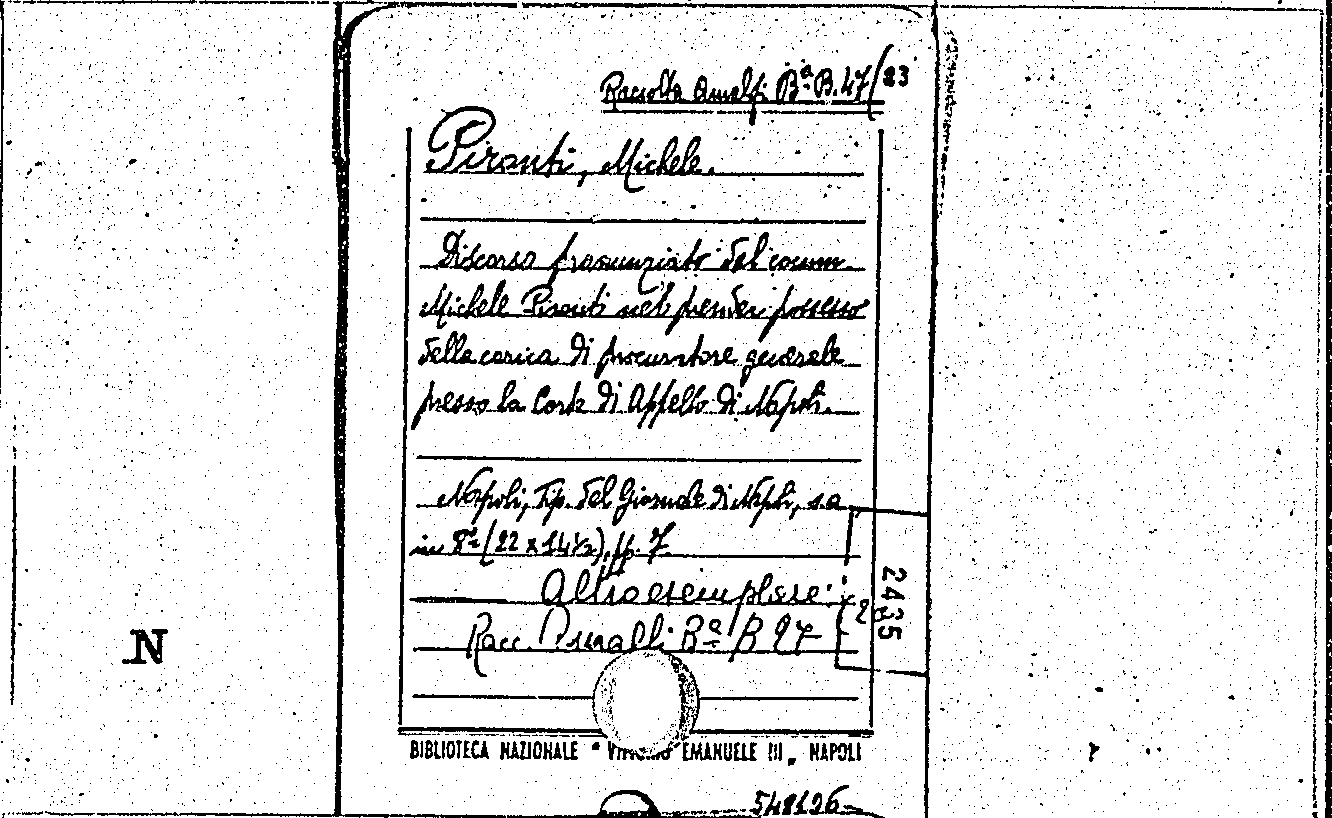 Raccolta Amalfi Bª B. 47/23
Pironti, Michele.
Discorso pronunziato dal comm.
Michele Pironti nel prender possesso
della carica di procuratore generale
presso la Corte di Appello di Napoli.
Napoli, Tip. del Giornale di Napoli, s.a.
in 8º (22 x 14½), pp. 7
Altro esemplare:
Racc. Bª B 27
2435
N
BIBLIOTECA NAZIONALE "VITTORIO EMANUELE III" NAPOLI
548126